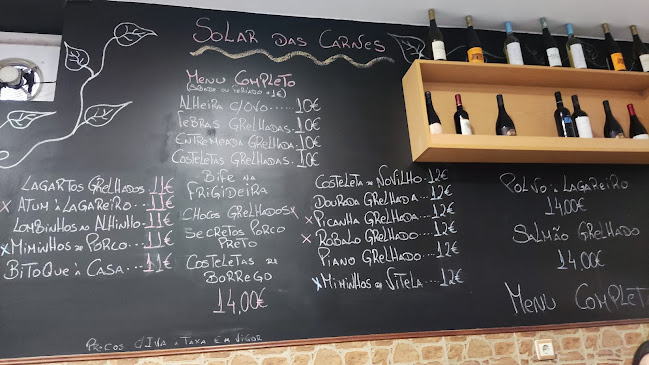 SOLAR DAS CARNES
MENU COMPLETO
(SÁBADO OU FERIADO +1€)
ALHEIRA C/OVO...... 10€
FEBRAS GRELHADAS. 10€
ENTREMEADA GRELHADA. 10€
COSTELETAS GRELHADAS. 10€
LAGARTOS GRELHADOS 11€
X ATUM À LAGAREIRO.. 11€
LOMBINHOS AO ALHINHO. 11€
X MIMINHOS DE PORCO.. 11€
BITOQUE À CASA... 11€
BIFE NA
FRIGIDEIRA
CHOCOS GRELHADOS X
SECRETOS PORCO
PRETO
COSTELETAS DE
BORREGO
14,00€
COSTELETA DE NOVILHO. 12€
DOURADA GRELHADA... 12€
X PICANHA GRELHADA... 12€
X ROBALO GRELHADO... 12€
PIANO GRELHADO.... 12€
X MIMINHOS DE VITELA... 12€
POLVO À LAGAREIRO
14,00€
SALMÃO GRELHADO
14,00€
MENU COMPLET
PREÇOS C/IVA À TAXA EM VIGOR